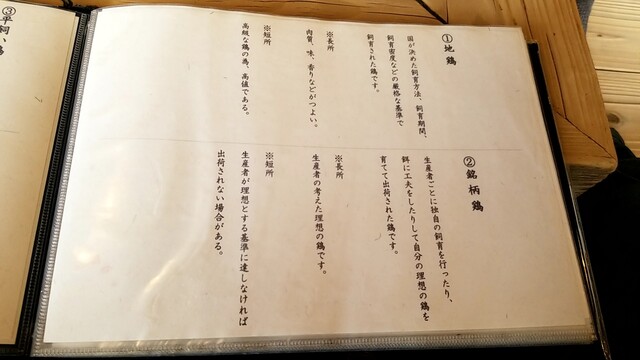 ①地鶏
国が決めた飼育方法、飼育期間、
飼育密度などの厳格な基準で
飼育された鶏です。
※長所
肉質、味、香りなどがつよい。
※短所
高級な鶏の為、高値である。
②銘柄鶏
生産者ごとに独自の飼育を行ったり、
餌に工夫をしたりして自分の理想の鶏を
育てて出荷された鶏です。
※長所
生産者の考えた理想の鶏です。
※短所
生産者が理想とする基準に達しなければ
出荷されない場合がある。
③平飼い鶏